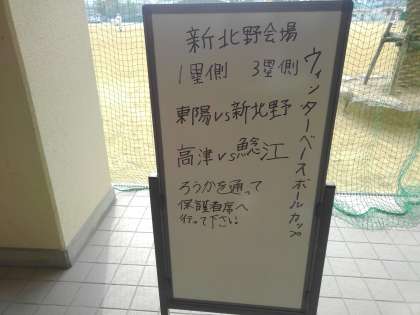 ウィンターベースボールカップ
新北野会場
1塁側 3塁側
東陽vs新北野
高津vs鯰江
ろうかを通って
保護者席へ
行って下さい